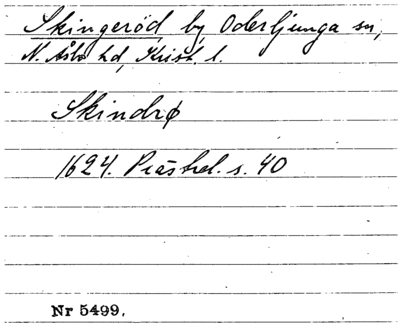 Skingeröd by, Oderljunga sn,
N. Åsbo hd, Krist. l.
Skindrø
1624. Prästrel. s. 40
Nr 5499.